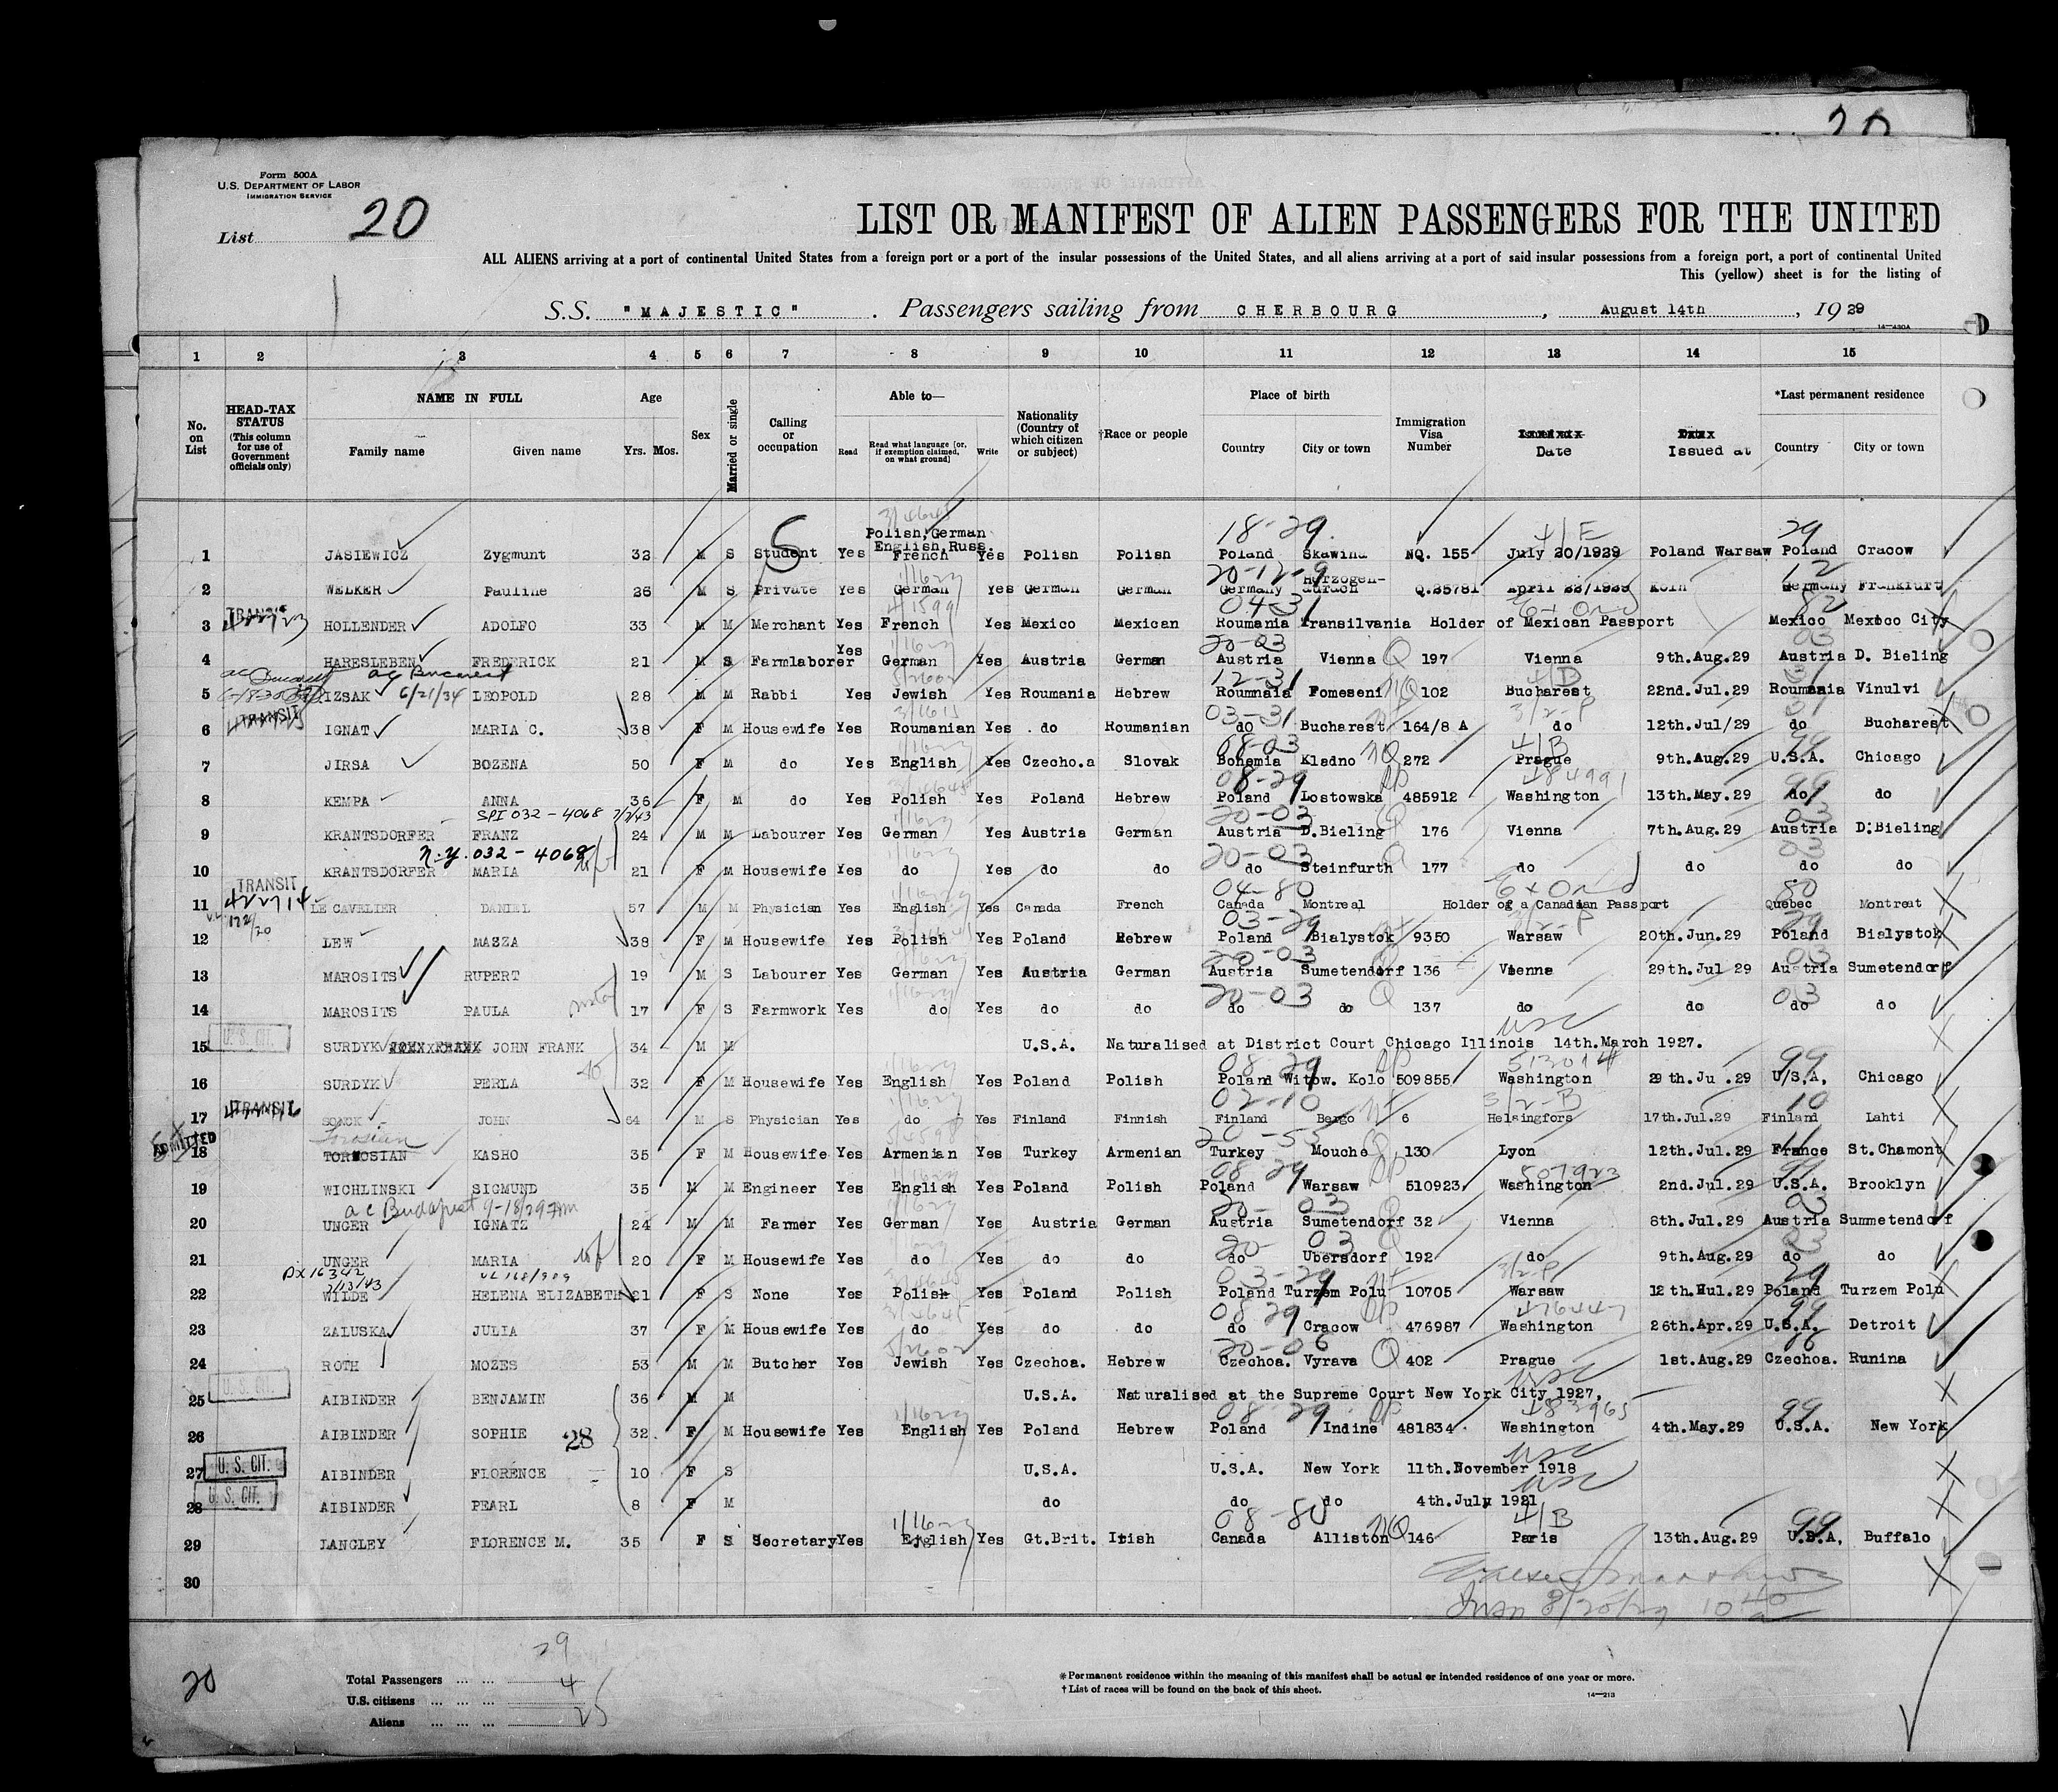 20
Form 500A
U.S. DEPARTMENT OF LABOR
IMMIGRATION SERVICE
List 20
LIST OR MANIFEST OF ALIEN PASSENGERS FOR THE UNITED
ALL ALIENS arriving at a port of continental United States from a foreign port or a port of the insular possessions of the United States, and all aliens arriving at a port of said insular possessions from a foreign port, a port of continental United
This (yellow) sheet is for the listing of
S.S. "MAJESTIC". Passengers sailing from CHERBOURG, August 14th, 1929
14—430A
1 2 3 4 5 6 7 8 9 10 11 12 13 14 15
No. on List
HEAD-TAX STATUS (This column for use of Government officials only)
NAME IN FULL
Family name Given name
Age
Yrs. Mos.
Sex
Married or single
Calling or occupation
Able to—
Read Read what language [or, if exemption claimed, on what ground] Write
Nationality (Country of which citizen or subject)
†Race or people
Place of birth
Country City or town
Immigration Visa Number
Date
Issued at
*Last permanent residence
Country City or town
3/4645
18-29 4/E 29
Polish, German
English, Russ.
1 JASIEWICZ Zygmunt 32 M S Student Yes French Yes Polish Polish Poland Skawina NQ. 155 July 20/1929 Poland Warsaw Poland Cracow
1/1629 20-12-9 12
Herzogen-
2 WELKER Pauline 26 M S Private Yes German Yes German German Germany aurach Q.25781 April 23/1929 Koln Germany Frankfurt
TRANSIT 04-31 82
3 HOLLENDER ADOLFO 33 M M Merchant Yes French Yes Mexico Mexican Roumania Transilvania Holder of Mexican Passport Mexico Mexico City
1/1629 20-03 03
4 HARESLEBEN FREDERICK 21 M S Farmlaborer Yes German Yes Austria German Austria Vienna Q 197 Vienna 9th.Aug.29 Austria D. Bieling
ac Bucarest 12-31 4/B 31
5 IZSAK 6/21/34 LEOPOLD 28 M M Rabbi Yes Jewish Yes Roumania Hebrew Roumnaia Fomeseni NQ 102 Bucharest 22nd.Jul.29 Roumania Vinulvi
TRANSIT 03-31 3/2-P 31
6 IGNAT MARIA C. 38 F M Housewife Yes Roumanian Yes do Roumanian do Bucharest 164/8 A do 12th.Jul/29 do Bucharest
1/1629 08-03 4/B 99
7 JIRSA BOZENA 50 F M do Yes English Yes Czecho.a Slovak Bohemia Kladno NQ 272 Prague 9th.Aug.29 U.S.A. Chicago
08-29 RP 484991 99
8 KEMPA ANNA 36 F M do Yes Polish Yes Poland Hebrew Poland Lostowska 485912 Washington 13th.May.29 do do
SPI 032-4068 1/1629 20-03 03
9 KRANTSDORFER FRANZ 24 M M Labourer Yes German Yes Austria German Austria D.Bieling Q 176 Vienna 7th.Aug.29 Austria D.Bieling
N.Y. 032-4068 wf 20-03 03
10 KRANTSDORFER MARIA 21 F M Housewife Yes do Yes do do do Steinfurth Q 177 do do do do
TRANSIT 1/1629 04-80 80
11 LE CAVELIER DANIEL 57 M M Physician Yes English Yes Canada French Canada Montreal Holder of a Canadian Passport Quebec Montreat
03-29 3/2-P 29
12 LEW MASZA 39 F M Housewife Yes Polish Yes Poland Hebrew Poland Bialystok 9350 Warsaw 20th.Jun.29 Poland Bialystok
1/1629 20-03 03
13 MAROSITS RUPERT 19 M S Labourer Yes German Yes Austria German Austria Sumetendorf 136 Vienna 29th.Jul 29 Austria Sumetendorf
sister 1/1629 20-03 03
14 MAROSITS PAULA 17 F S Farmwork Yes do Yes do do do do Q 137 do do do do
U.S. CIT. USC
15 SURDYK JOHN FRANK 34 M M U.S.A. Naturalised at District Court Chicago Illinois 14th.March 1927.
1/1629 08-29 RP 513014 99
16 SURDYK PERLA 32 F M Housewife Yes English Yes Poland Polish Poland Witow. Kolo 509855 Washington 29th.Ju .29 U/S.A. Chicago
TRANSIT 1/1629 02-10 3/2-B 10
17 SONCK JOHN 64 M S Physician Yes do Yes Finland Finnish Finland Bergo 6 Helsingfors 17th.Jul.29 Finland Lahti
ADMITTED Torosian
18 TOROSIAN KASHO 35 F M Housewife Yes Armenian Yes Turkey Armenian Turkey Mouche 130 Lyon 12th.Jul.29 France St.Chamont
08-29 RP 507923 99
19 WICHLINSKI SIGMUND 35 M M Engineer Yes English Yes Poland Polish Poland Warsaw 510923 Washington 2nd.Jul.29 U.S.A. Brooklyn
ac Budapest 9-18/29 1/1629 20-03 03
20 UNGER IGNATZ 24 M M Farmer Yes German Yes Austria German Austria Sumetendorf 32 Vienna 8th.Jul.29 Austria Summetendorf
wf 20-03 03
21 UNGER MARIA 20 F M Housewife Yes do Yes do do do Ubersdorf 192 do 9th.Aug.29 do do
03-29 3/2-P 29
22 WILDE HELENA ELIZABETH 21 F S None Yes Polish Yes Poland Polish Poland Turzem Polu 10705 Warsaw 12th.Hul.29 Poland Turzem Polu
3/4645 08-29 RP 476447 99
23 ZALUSKA JULIA 37 F M Housewife Yes do Yes do do do Cracow 476987 Washington 26th.Apr.29 U.S.A. Detroit
5/2602 20-06 06
24 ROTH MOZES 53 M M Butcher Yes Jewish Yes Czechoa. Hebrew Czechoa. Vyrava Q 402 Prague 1st.Aug.29 Czechoa. Runina
U.S. CIT. USC
25 AIBINDER BENJAMIN 36 M M U.S.A. Naturalised at the Supreme Court New York City 1927,
1/1629 08-29 RP 483965 99
26 AIBINDER SOPHIE 28 32 F M Housewife Yes English Yes Poland Hebrew Poland Indine 481834 Washington 4th.May.29 U.S.A. New York
U. S. CIT. USC
27 AIBINDER FLORENCE 10 F S U.S.A. U.S.A. New York 11th.November 1918
U. S. CIT. USC
28 AIBINDER PEARL 8 F M do do do 4th.July 1921
1/1629 08-80 4/B 99
29 LANGLEY FLORENCE M. 35 F S Secretary Yes English Yes Gt.Brit. Irish Canada Alliston NQ 146 Paris 13th.Aug.29 U.S.A. Buffalo
30
Insp 8/20/29 10 40 a
20
Total Passengers ... ... 29
U.S. citizens ... ... ... 4
Aliens ... ... ... 25
*Permanent residence within the meaning of this manifest shall be actual or intended residence of one year or more.
†List of races will be found on the back of this sheet.
14—213